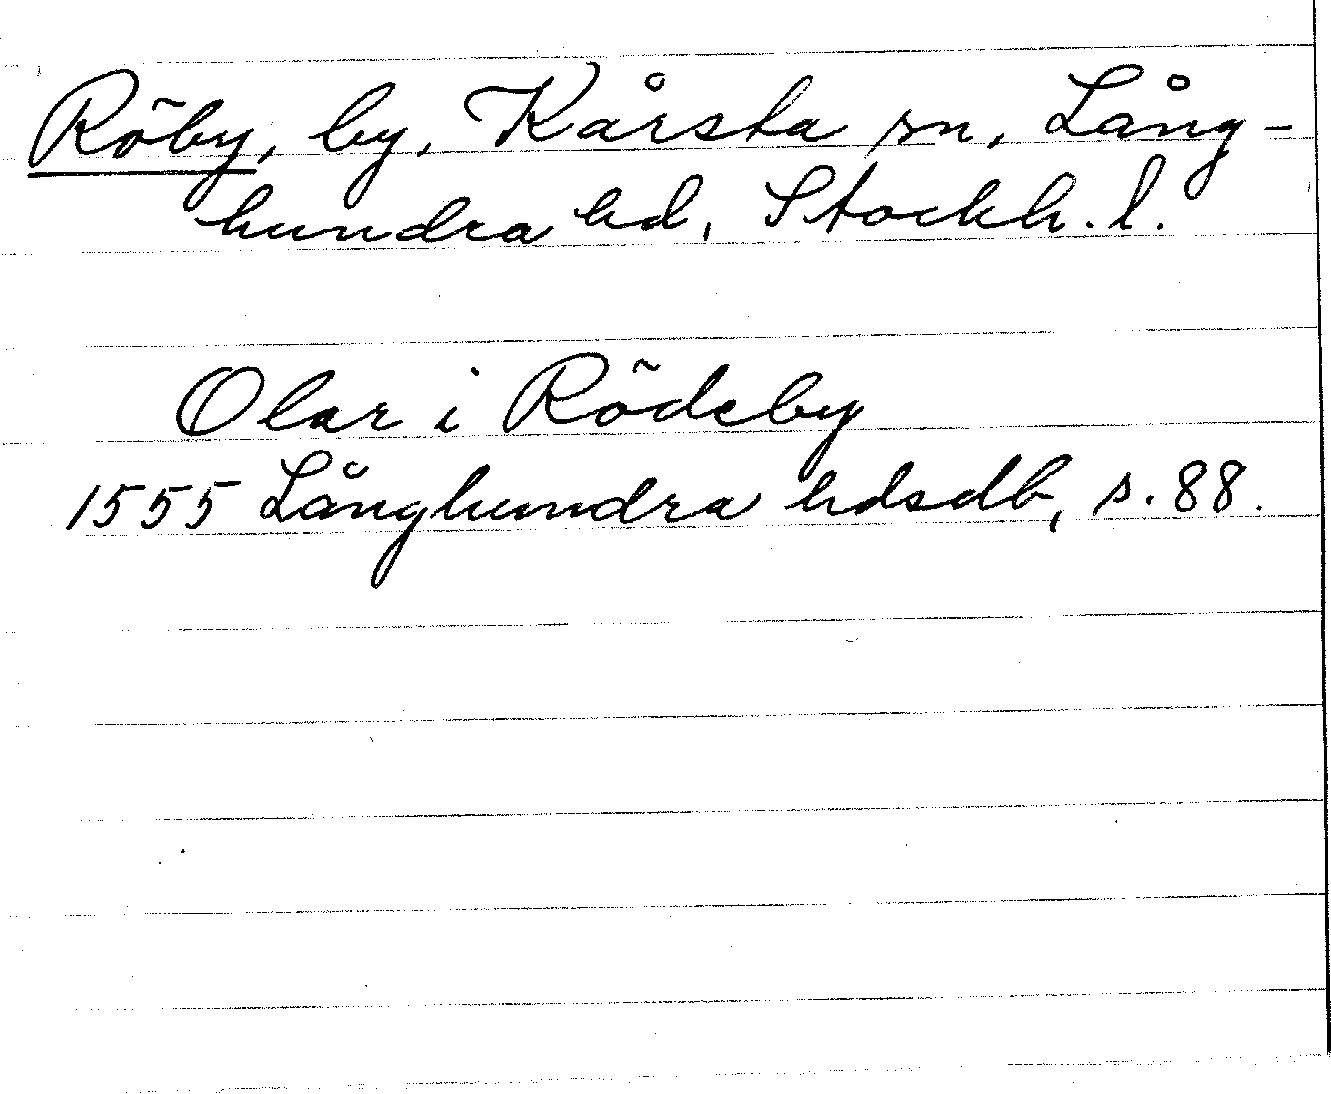 Röby, by, Kårsta sn, Lång-
hundra hd, Stockh. l.
Olar i Rödeby
1555 Långhundra hdsdb, s. 88.